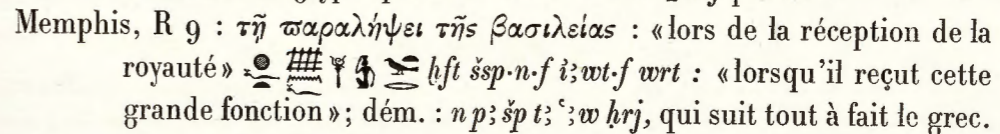 Memphis, R 9 : τῇ παραλήψει τῆς βασιλείας : «lors de la réception de la
royauté» ḫft šsp·n·f iꜣwt·f wrt : «lorsqu'il reçut cette
grande fonction»; dém. : n pꜣ šp tꜣ ꜥꜣw ḥrj, qui suit tout à fait le grec.